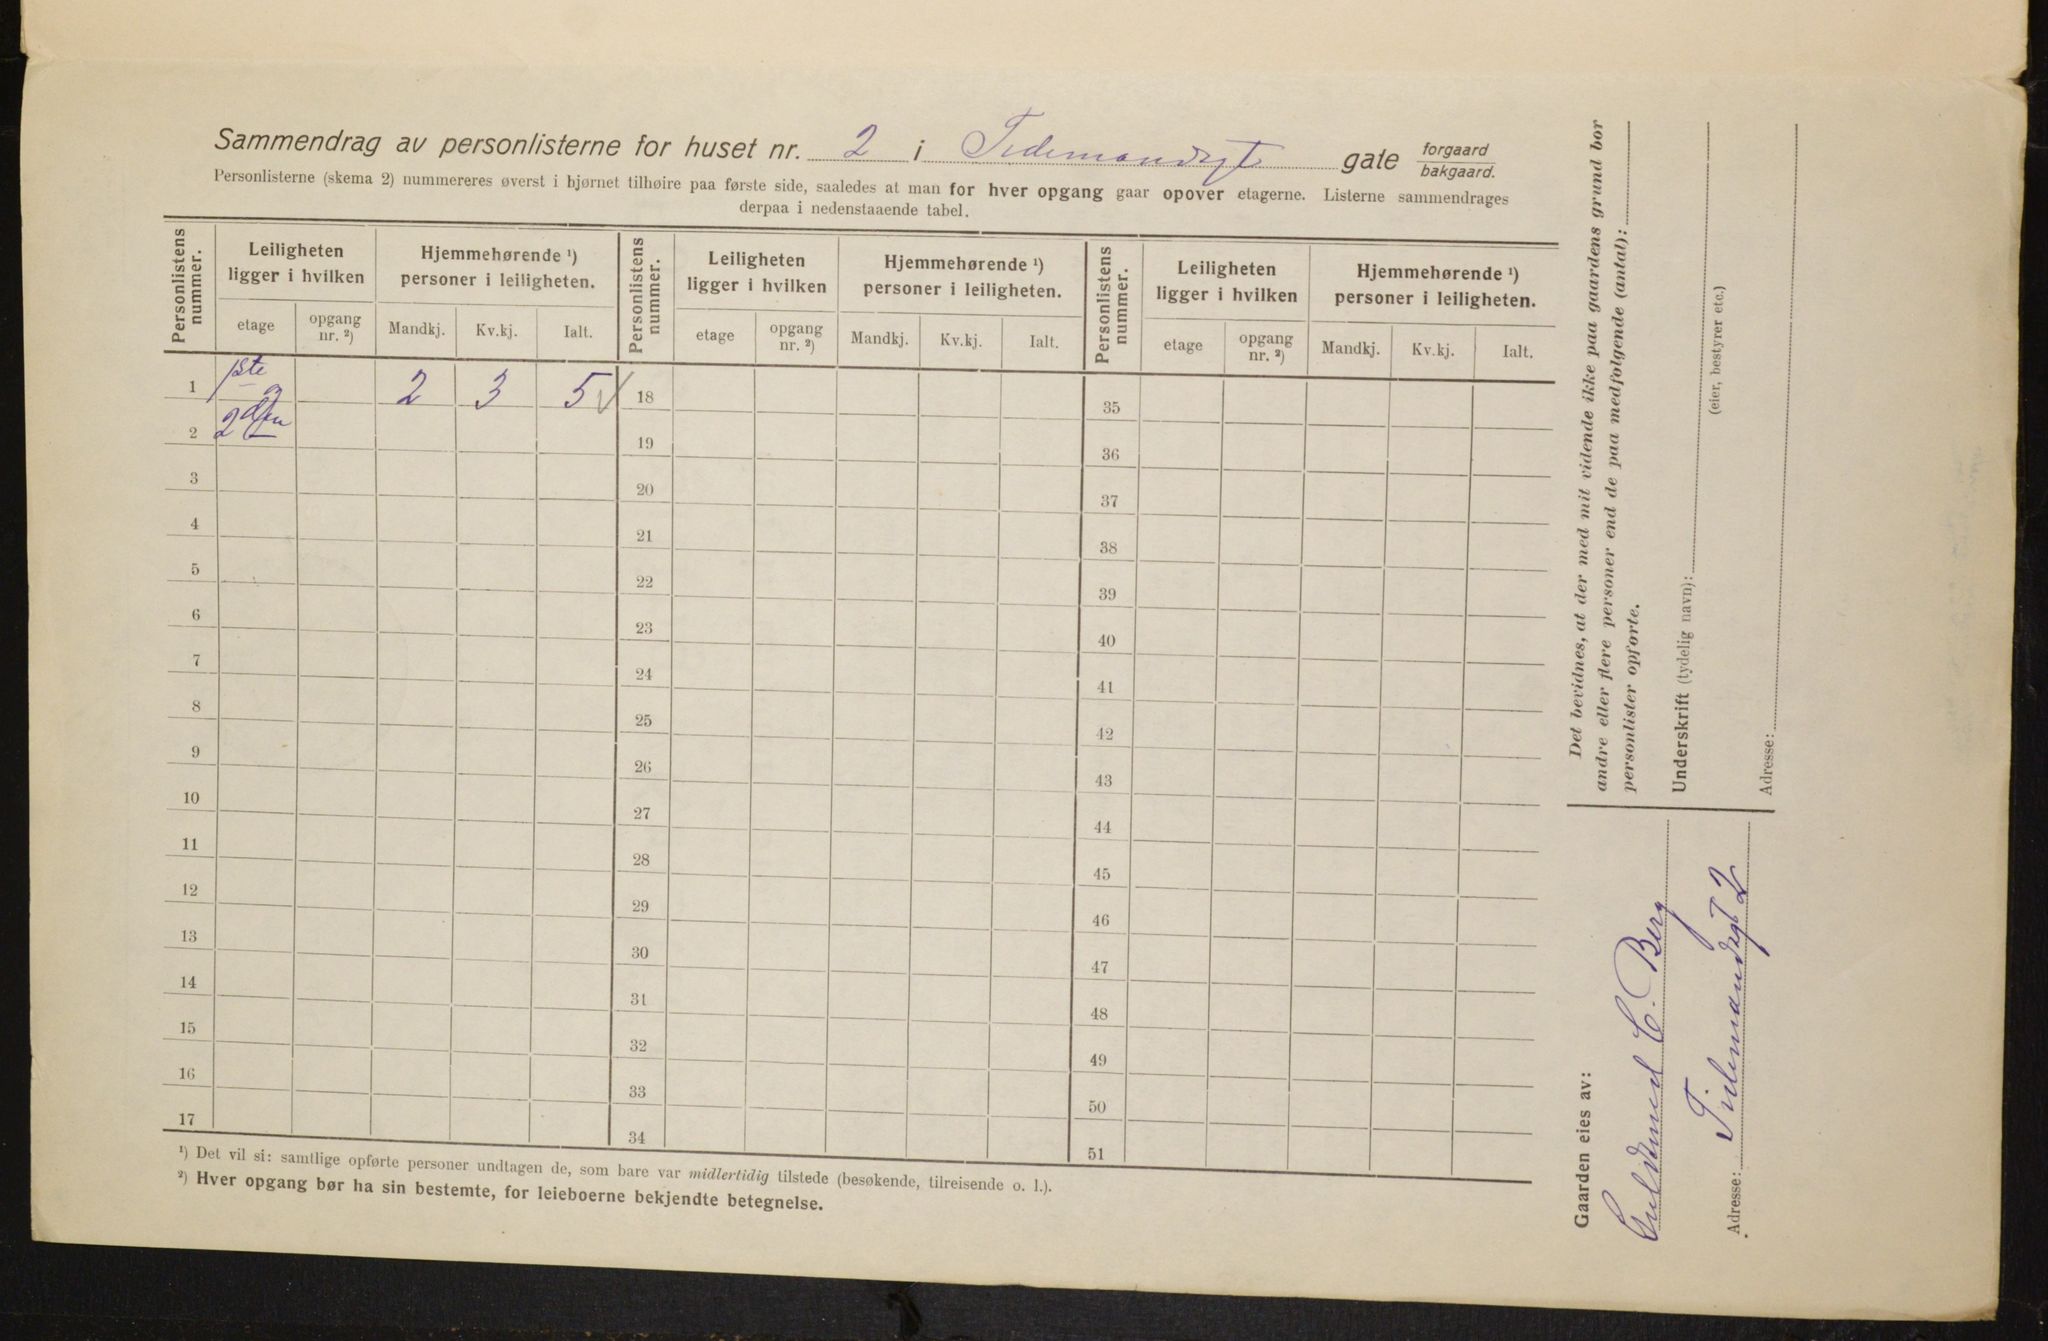 Sammendrag av personlisterne for huset nr. 2 i Tidemandsgt gate forgaard/bakgaard.
Personlisterne (skema 2) nummereres øverst i hjørnet tilhøire paa første side, saaledes at man for hver opgang gaar opover etagerne. Listerne sammendrages
derpaa i nedenstaaende tabel.
Personlistens nummer. Leiligheten ligger i hvilken Hjemmehørende ¹) personer i leiligheten. Personlistens nummer. Leiligheten ligger i hvilken Hjemmehørende ¹) personer i leiligheten. Personlistens nummer. Leiligheten ligger i hvilken Hjemmehørende ¹) personer i leiligheten.
etage opgang nr. ²) Mandkj. Kv.kj. Ialt. etage opgang nr. ²) Mandkj. Kv.kj. Ialt. etage opgang nr. ²) Mandkj. Kv.kj. Ialt.
1 1ste og 2 3 5 18 35
2 2den 19 36
3 20 37
4 21 38
5 22 39
6 23 40
7 24 41
8 25 42
9 26 43
10 27 44
11 28 45
12 29 46
13 30 47
14 31 48
15 32 49
16 33 50
17 34 51
¹) Det vil si: samtlige opførte personer undtagen de, som bare var midlertidig tilstede (besøkende, tilreisende o. l.).
²) Hver opgang bør ha sin bestemte, for leieboerne bekjendte betegnelse.
Det bevidnes, at der med mit vidende ikke paa gaardens grund bor
andre eller flere personer end de paa medfølgende (antal):
personlister opførte.
Underskrift (tydelig navn):
(eier, bestyrer etc.)
Adresse:
Gaarden eies av:
C. Berg
Adresse: Tidemandsgt 2